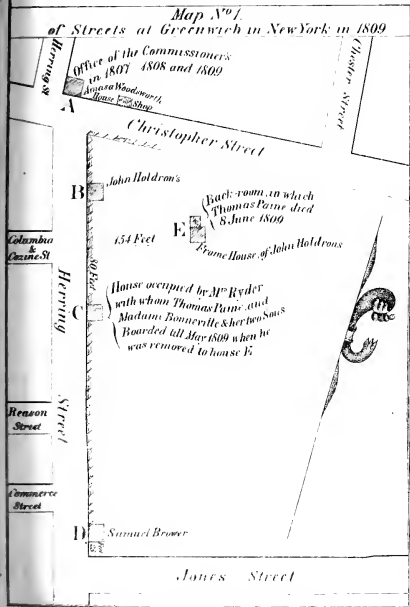 Map No 1.
of Streets at Greenwich in New York in 1809
Herring St
Office of the Commissioners
in 1807 1808 and 1809
Amasa Woodsworth
House
Shop
A
Chester Street
Christopher Street
B
John Holdron's
Back-room, in which
Thomas Paine died
8 June 1809
E
Frame House, of John Holdrons
154 Feet
80 Feet
Columbia
& Cazine St
Herring Street
C
House occupied by Mrs Ryder
with whom Thomas Paine, and
Madame Bonneville & her two Sons
Boarded till May 1809 when he
was removed to house E
Reason
Street
Commerce
Street
D
Samuel Brower
Jones Street